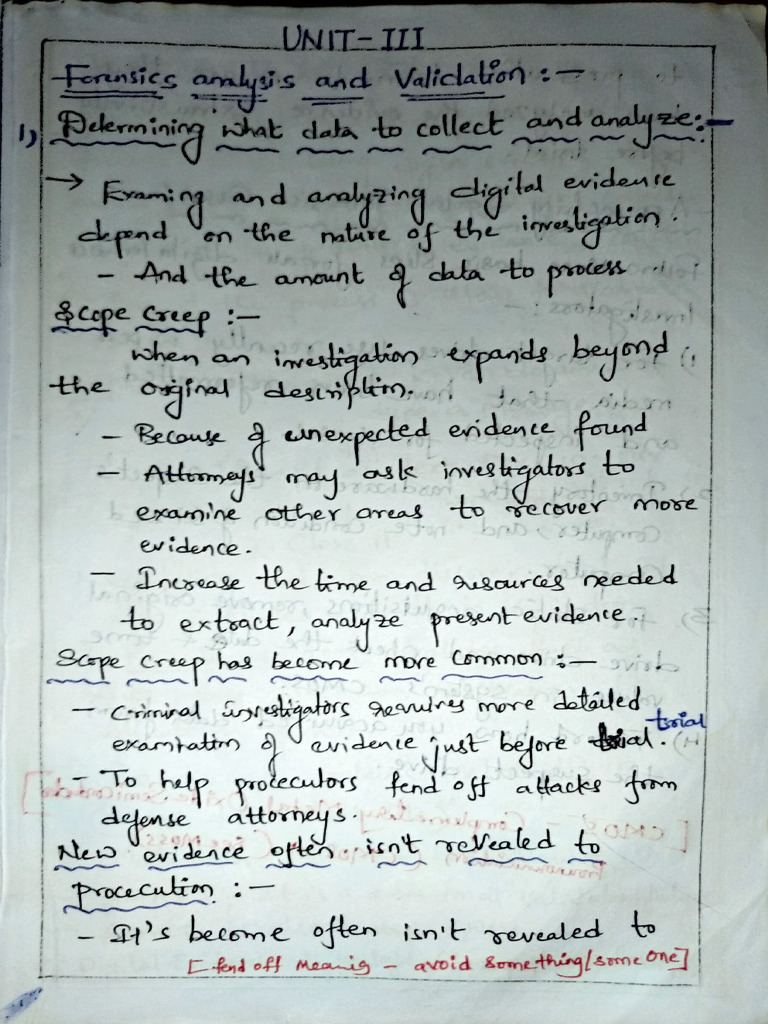 UNIT-III
Forensics analysis and Validation :-
1) Determining what data to collect and analyze:-
→ Examing and analyzing digital evidence
depend on the nature of the investigation.
- And the amount of data to process
Scope Creep :-
When an investigation expands beyond
the orginal description.
- Because of unexpected evidence found
- Attorneys may ask investigators to
examine other areas to recover more
evidence.
- Increase the time and resources needed
to extract, analyze present evidence.
Scope Creep has become more common :-
- Criminal investigators requires more detailed
examination of evidence just before trial. trial
- To help procecutors fend off attacks from
defense attorneys.
New evidence often isn't revealed to
procecution :-
- It's become often isn't revealed to
[fend off means - avoid something/some one]